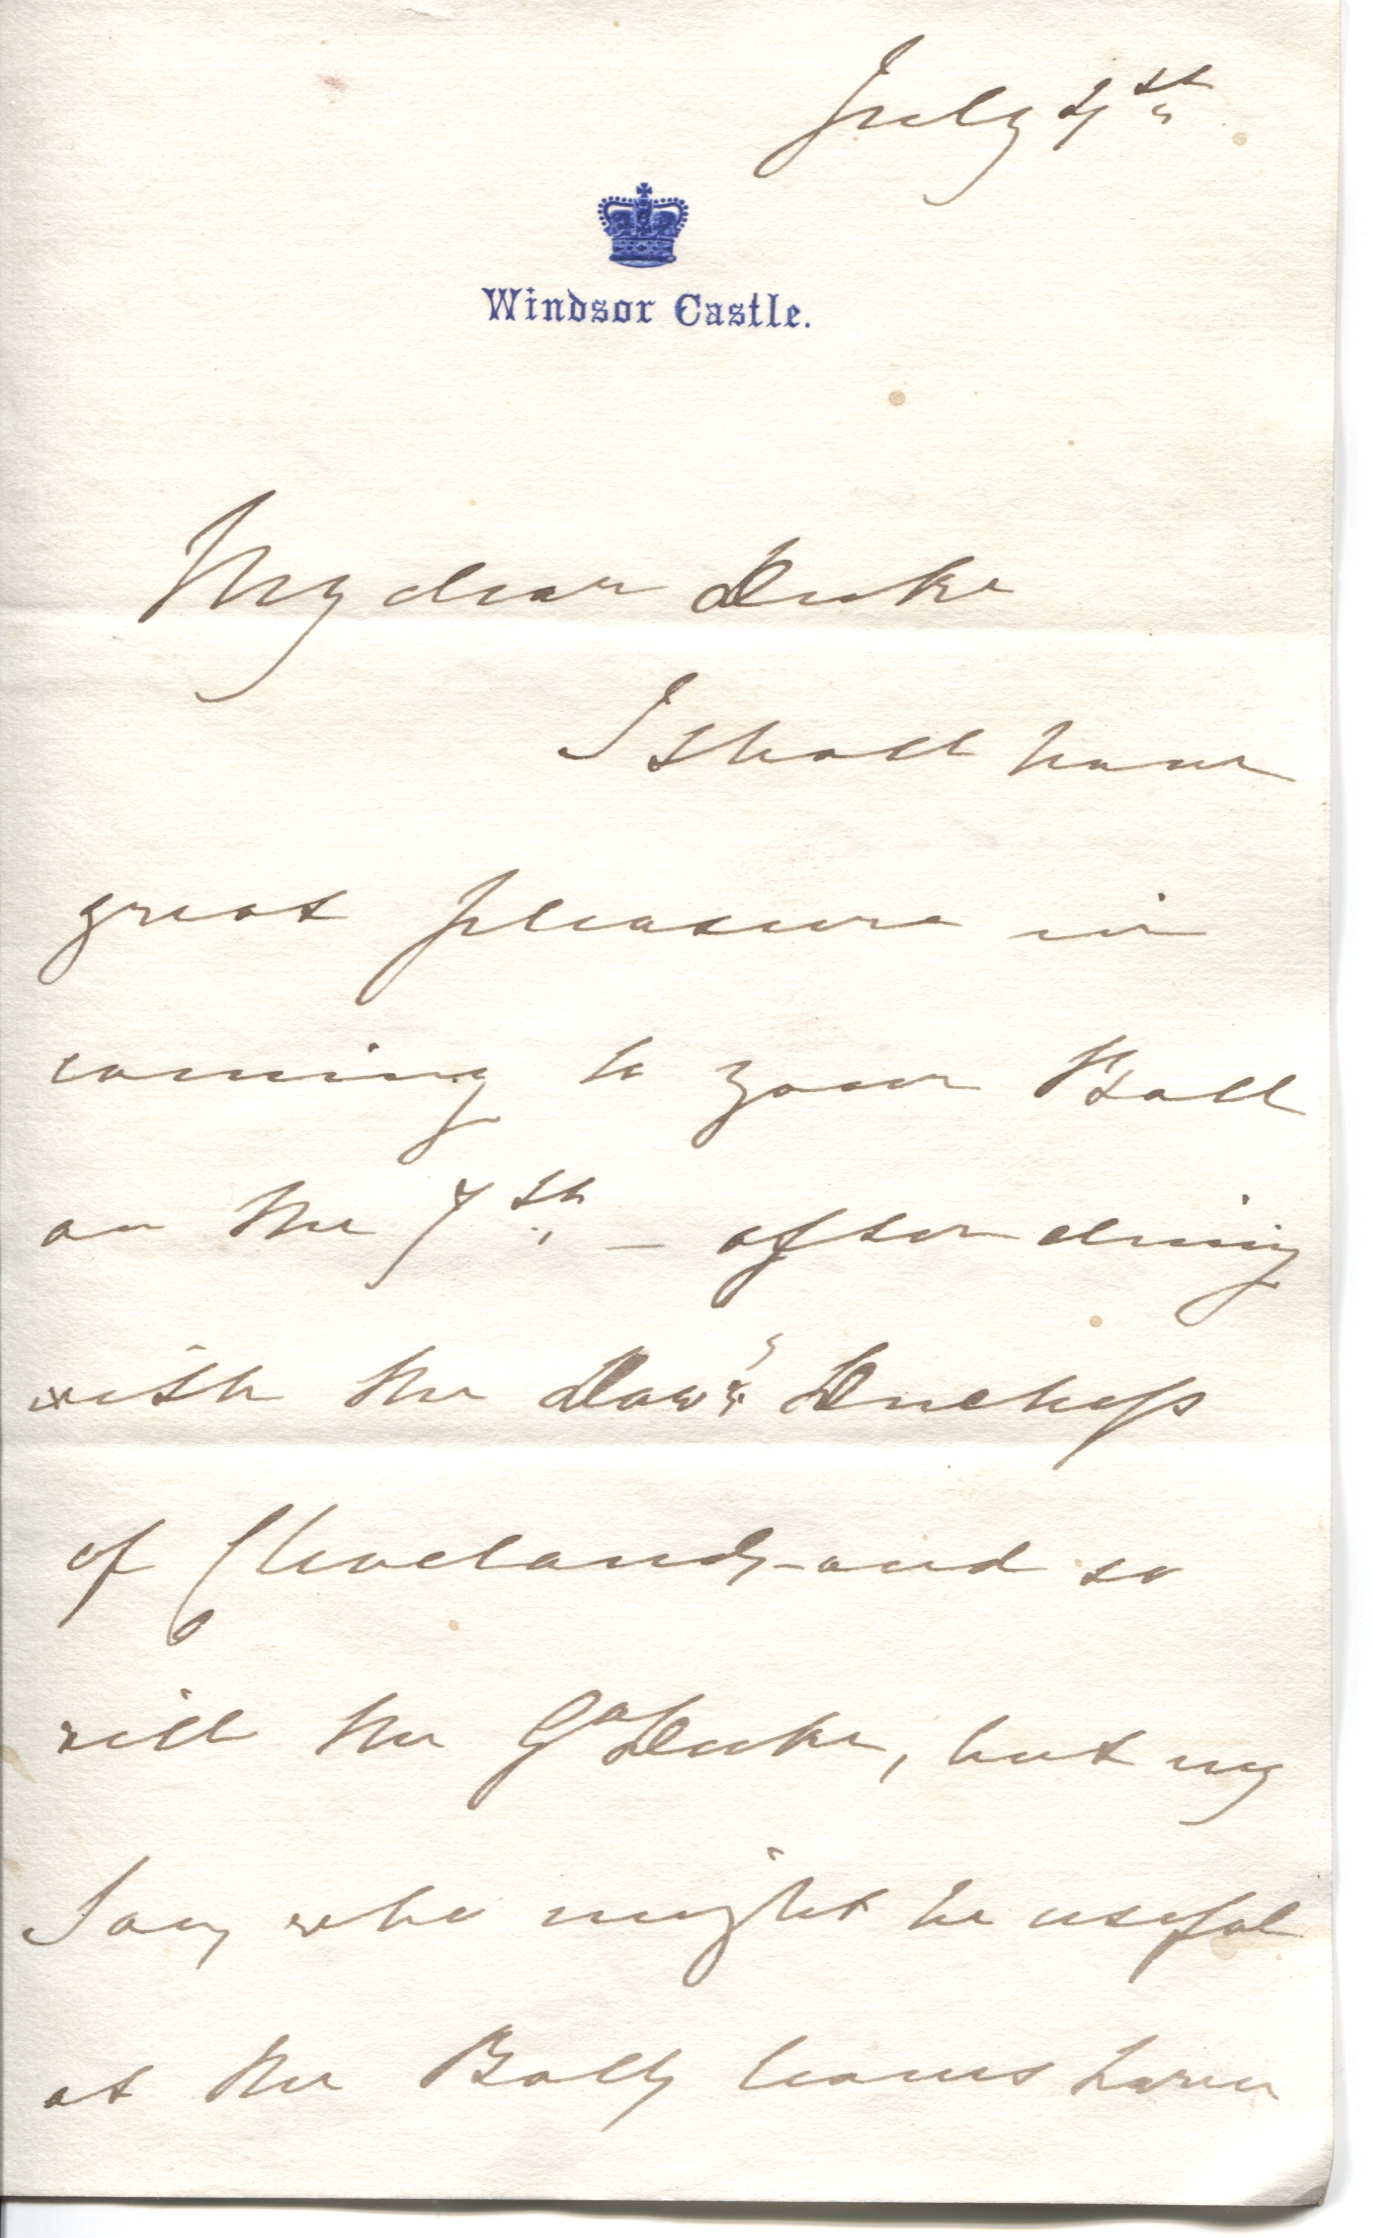 July 4th
Windsor Castle.
My dear Duke
I shall have
great pleasure in
coming to your Ball
on the 7th — after dining
with the Dowr Duchess
of Cleveland, and so
will the Gd Duke, but my
Son, who might be useful
at the Ball, leaves